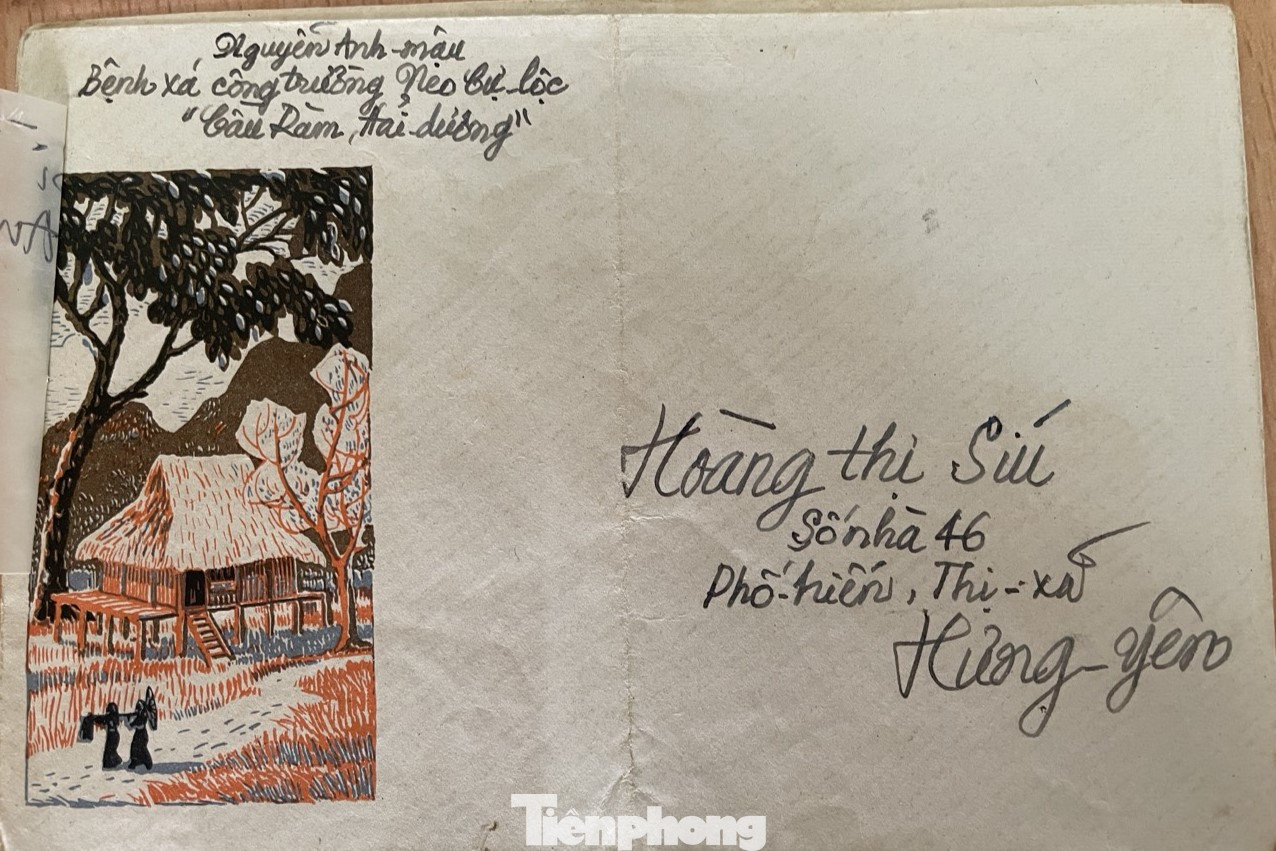 Nguyễn Anh-mậu
Bệnh xá công trường Nẹo Cự-lộc
"Cầu Ràm, Hải-dương"
Hoàng thị Siú
Số nhà 46
Phố-hiến, Thị-xã
Hưng-yên
Tiênphong